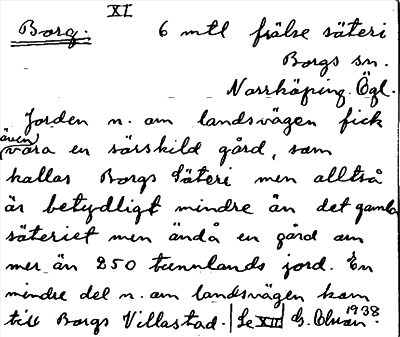 XI
Borg. 6 mtl frälse säteri
Borgs sn.
Norrköping. Ögl.
Jorden n. om landsvägen fick
även
vara en särskild gård, som
kallas Borgs Säteri men alltså
är betydligt mindre än det gamla
säteriet men ändå en gård om
mer än 250 tunnlands jord. En
mindre del n. om landsvägen kom
till Borgs Villastad. | Se XII | 1938.